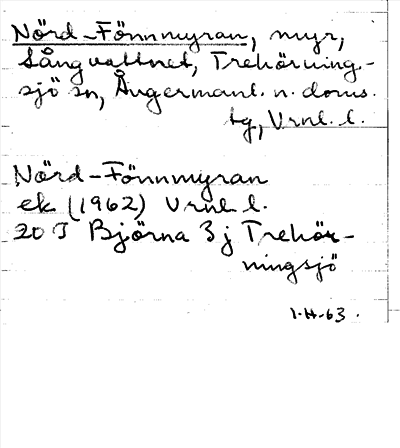 Nörd-Fönnmyran, myr,
Långvattnet, Trehörning-
sjö sn, Ångermanl. n. doms.
tg, Vrnl. l.
Nörd-Fönnmyran
ek (1962) Vrnl. l.
20 I Björna 3 j Trehör-
ningsjö